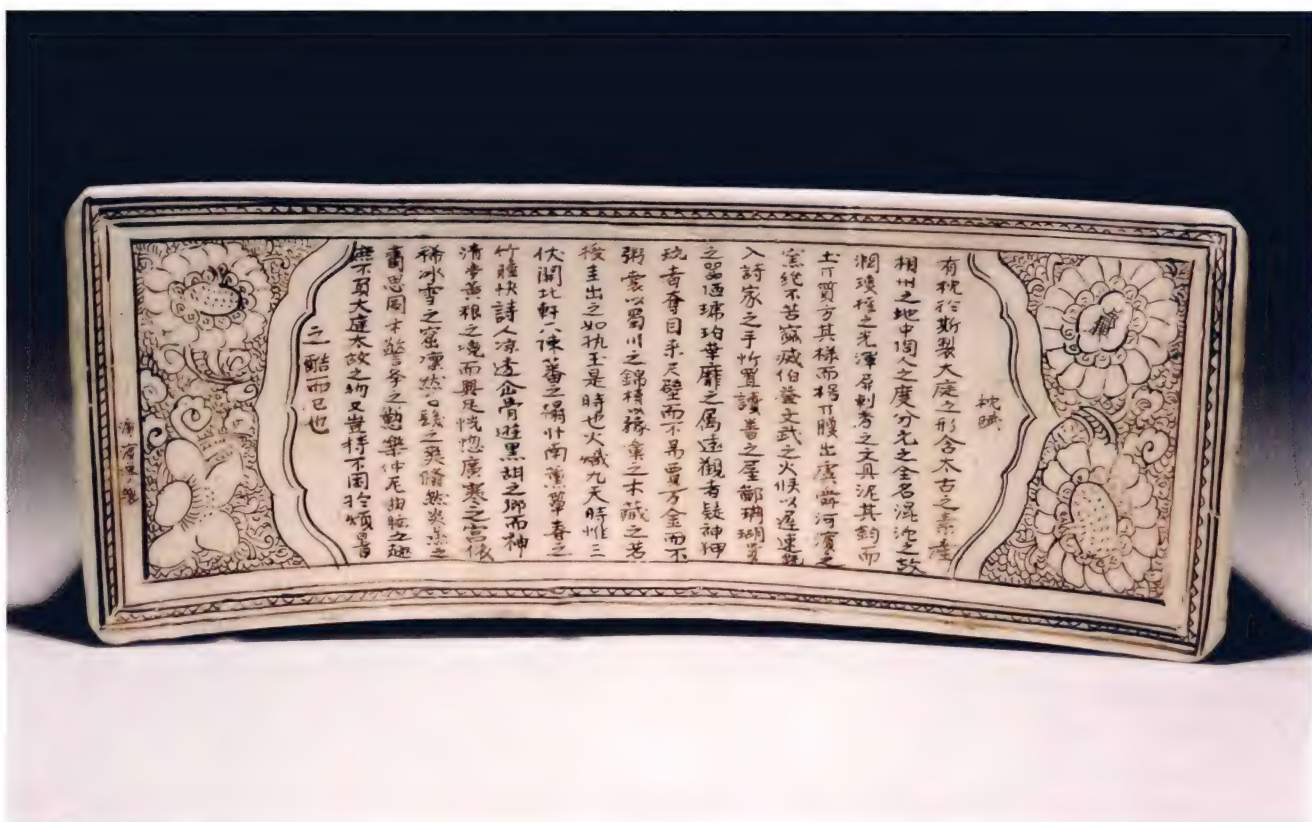 枕賦
有枕於斯製大庭之形含太古之素產
相州之地中陶人之度分元之全名混沌之故
潤瓊瑤之光渾屏刺秀之文具泥其鈞而
土丌質方其樣而枵丌腹出虞舜河濱之
窯絕不苦窳滅伯益文武之火候以遲速既
入詩家之手忻置讀書之屋鄙珊瑚貴
之器陋琥珀華靡之屬遠觀者疑神狎
玩者奪目禾尺璧而不易賈万金而不
粥囊以蜀川之錦樻以豫章之木藏之若
授圭出之如执玉是時也火熾九天時惟三
伏開北軒下陳蕃之榻卧南薰簟春之
竹睡快詩人凉透仙骨遊黑甜之鄉而神
清夢黃粮之境而興足恍惚廣寒之宮依
稀冰雪之窟凜然髮之爽翛然炎蒸之
肅思圓木警學之勤樂仲尼曲肱之趣
庶不負大庭太故之物又豈特不困於煩暑
之酷而已也
漳濱逸人製